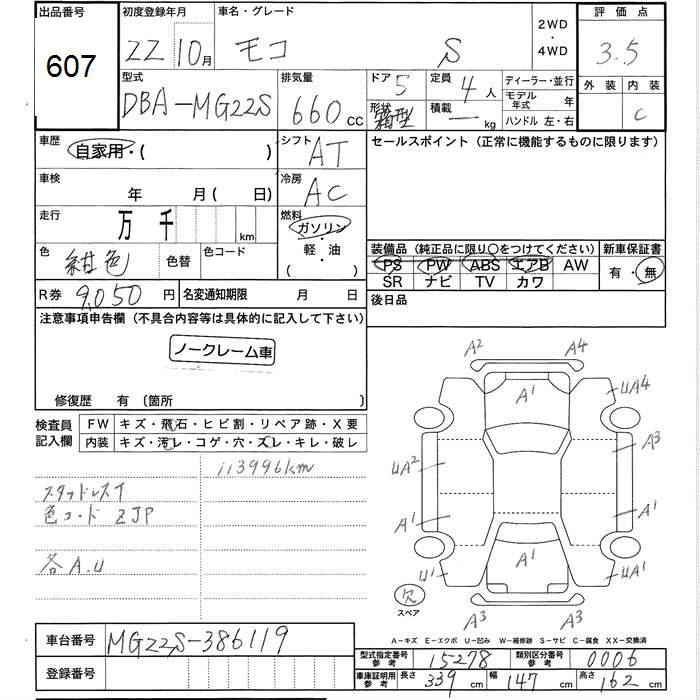 出品番号
607
初度登録年月
22 10月
車名・グレード
モコ S
2WD
・
4WD
評価点
3.5
外装 内装
C
型式
DBA-MG22S
排気量
660 cc
ドア 5
形状 箱型
定員 4 人
積載 — kg
ディーラー・並行
モデル年式 年
ハンドル 左・右
車歴
自家用・( )
シフト AT
セールスポイント (正常に機能するものに限ります)
車検
年 月( 日)
冷房 AC
走行
万 千 km
燃料
ガソリン
・
軽・油
( )
色 紺色 色替
色コード
装備品 (純正品に限り○をつけてください)
PS PW ABS エアB AW
SR ナビ TV カワ
新車保証書
有・無
R券 9,050 円
名変通知期限 月 日
後日品
注意事項申告欄 (不具合内容等は具体的に記入して下さい)
ノークレーム車
修復歴 有 〔箇所 〕
検査員
記入欄
FW キズ・飛石・ヒビ割・リペア跡・X要
内装 キズ・汚レ・コゲ・穴・スレ・キレ・破レ
113996km
スタッドレスT
色コード ZJP
各A.U
A2 A4
A1
UA4
A3
UA2
A1
A1
A1
U1
UA1
A3 A3
欠
スペア
A－キズ E－エクボ U－凹み W－補修跡 S－サビ C－腐食 XX－交換済
車台番号 MG22S-386119
登録番号
型式指定番号
参考
15278
類別区分番号
参考
0006
車庫証明用
参考
長さ 339 cm
幅 147 cm
高さ 162 cm